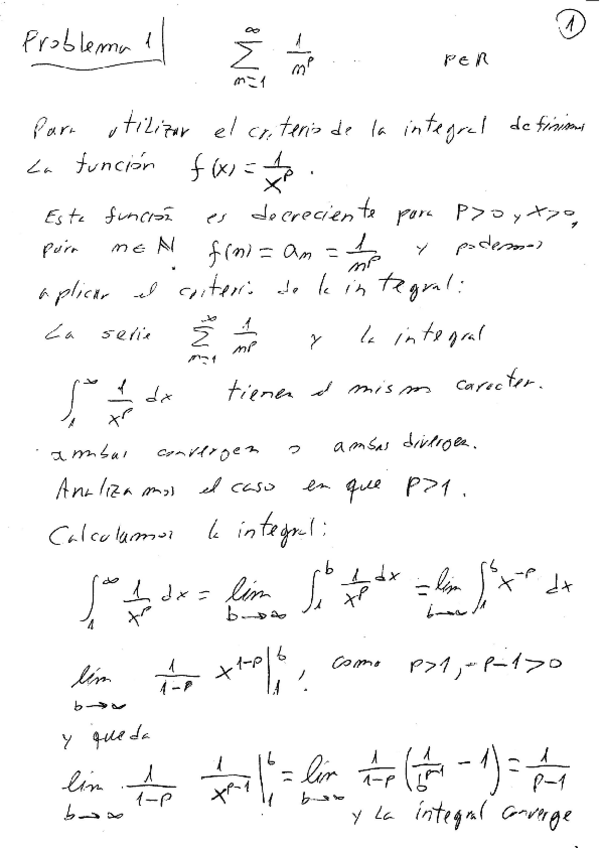 1
Problema 1 ∑_{m=1}^{∞} 1/m^p ... p∈R
Para utilizar el criterio de la integral definimos
La función f(x) = 1/x^p .
Esta función es decreciente para P>0 y x>0,
para m∈N f(m) = a_m = 1/m^p y podemos
aplicar el criterio de la integral:
La serie ∑_{m=1}^{∞} 1/m^p y la integral
∫_1^∞ 1/x^p dx tienen el mismo caracter.
ambas convergen o ambas divergen.
Analizamos el caso en que P>1.
Calculamos la integral:
∫_1^∞ 1/x^p dx = lim_{b→∞} ∫_1^b 1/x^p dx = lim_{b→∞} ∫_1^b x^{-p} dx
lim_{b→∞} 1/(1-p) x^{1-p} |_1^b , como p>1, P-1>0
y queda
lim_{b→∞} 1/(1-p) 1/x^{p-1} |_1^b = lim_{b→∞} 1/(1-p) (1/b^{p-1} - 1) = 1/(p-1)
y La integral converge